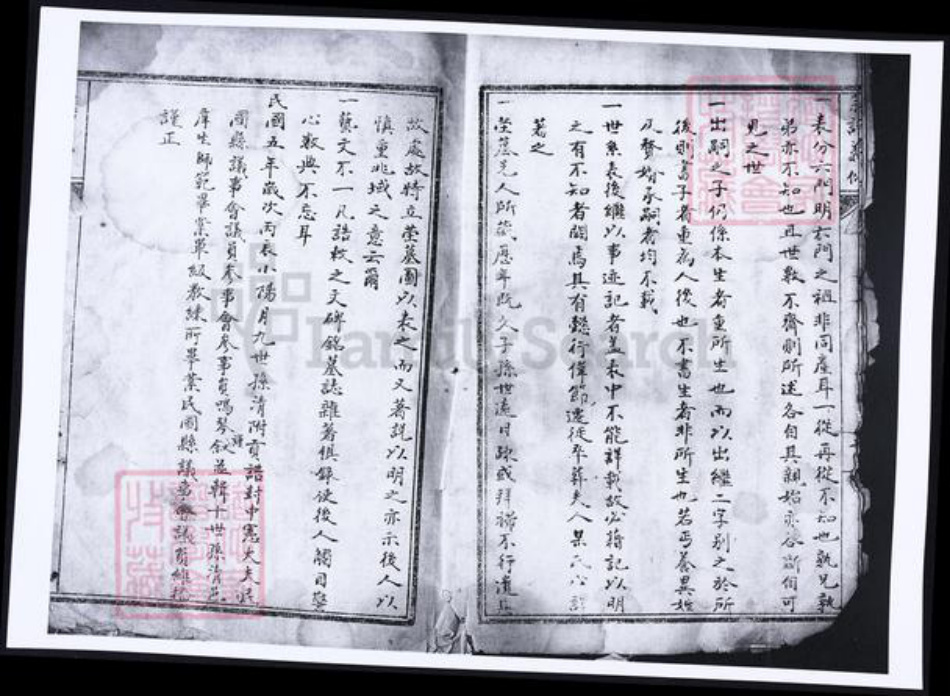 一表分六門明六門之祖非同產耳一從再從不知也孰兄孰
弟亦不知也且世數不齊則所述各自其親始亦各斷自可
見之世
一出嗣之子仍係本生者重所生也而以出繼二字別之於所
後則書子者重為人後也不書生者非所生也若丐養異姓
及贅婿承嗣者均不載
一世系表後繼以事迹記者蓋表中不能詳載故必藉記以明
之有不知者闕焉其有懿行偉節遷徙卒葬夫人某氏必詳
著之
一塋墓先人所藏歷年既久子孫世遠日疎或拜掃不行湮其
故處故特立塋墓圖以表之而又著說以明之亦示後人以
慎重兆域之意云爾
一藝文不一凡誥敕之文碑銘墓誌雜著俱錄使後人觸目警
心數典不忘耳
民國五年歲次丙辰小陽月九世孫清附貢誥封中憲大夫
國縣議事會議員參事會參事員鳴琴敘並輯十世孫清邑
庠生師範畢業單級教練所畢業民國縣議事會議員維
謹正
FamilySearch